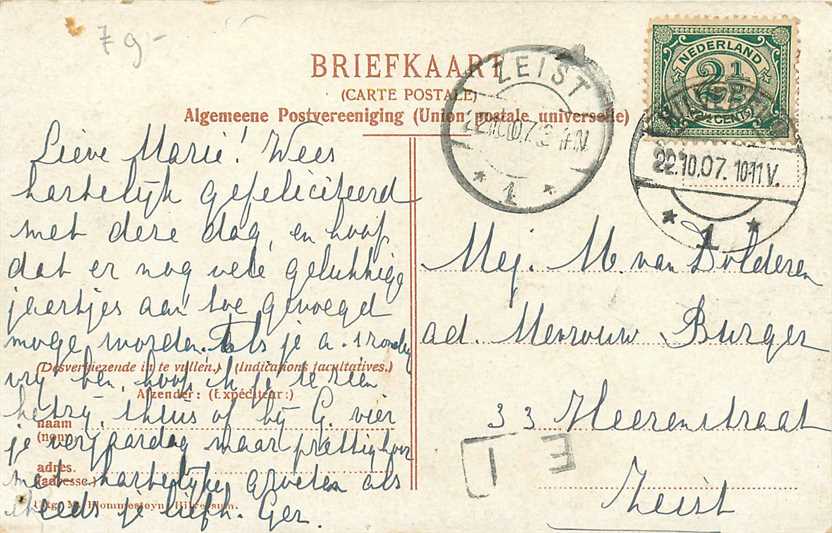 79-
BRIEFKAART
(CARTE POSTALE)
Algemeene Postvereeniging (Union postale universelle)
NEDERLAND
2½
CENT
ZEIST
1
22.10.07. 10-11V.
1
Lieve Marie! Wees
hartelijk gefeliciteerd
met deze dag, en hoop
dat er nog vele gelukkige
jaartjes aan toe gevoegd
moge worden. Als je a.s.
vrij ben, hoop ik je te zien
hetzij thuis of bij G. vier
je verjaardag maar prettig hoor
met hartelijke groeten als
steeds je liefh. Ger.
(Desverkiezende in te vullen.) (Indications facultatives.)
Afzender: (Expéditeur:)
naam
(nom)
adres.
(adresse.)
Mej. M. van Dolderen
ad. Mevrouw Burger
33 Heerenstraat
Zeist